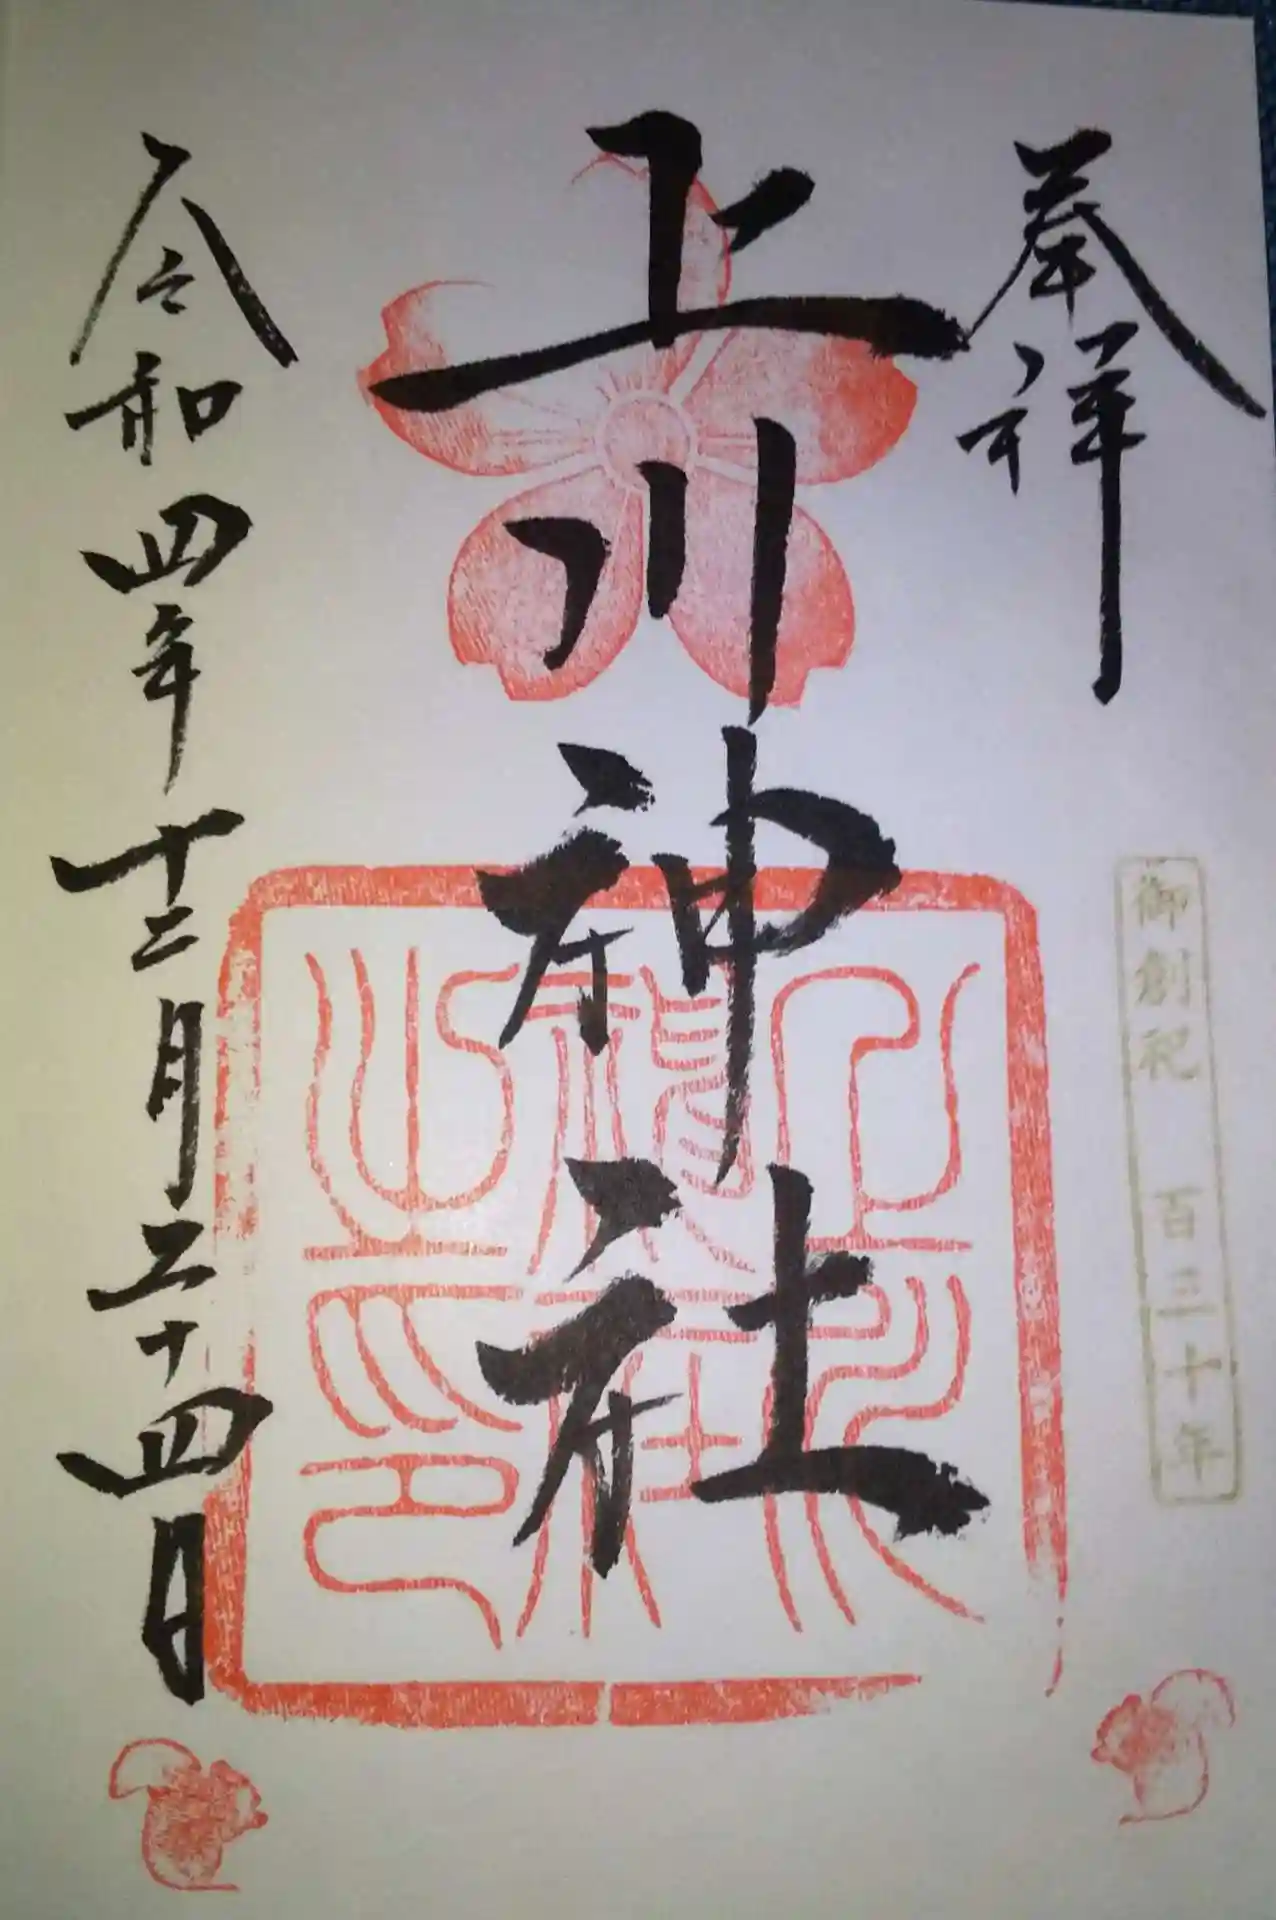 奉拝
御創祀 百三十年
上川神社
令和四年十二月二十四日